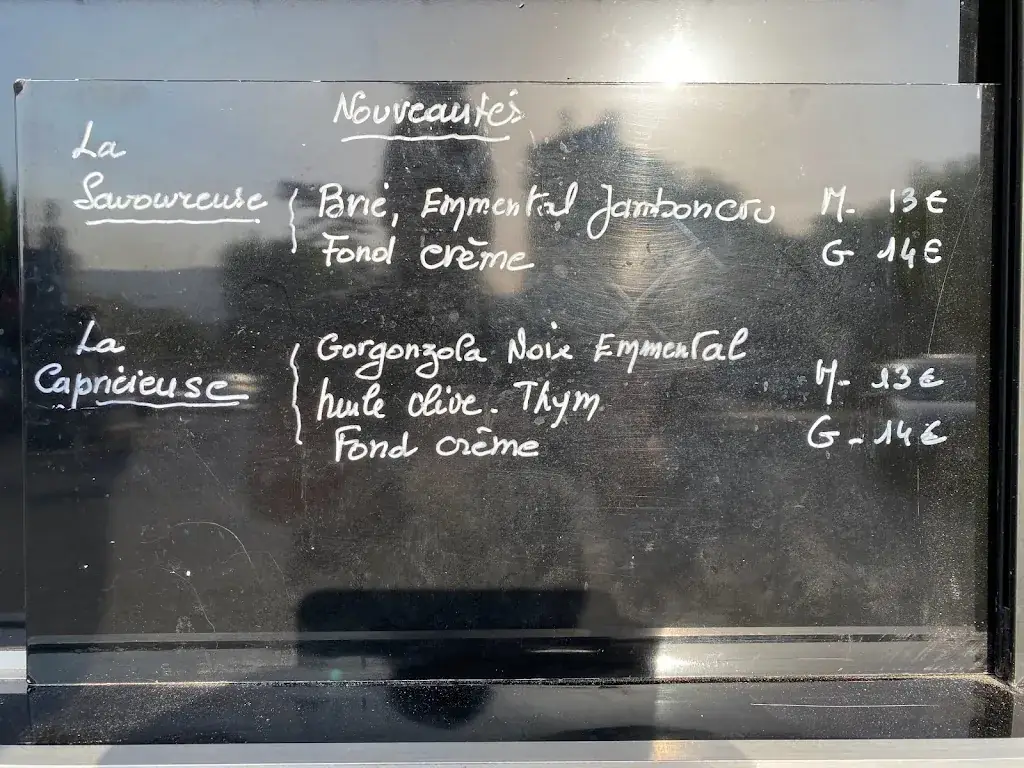 Nouveautés
La
Savoureuse { Brie, Emmental Jambon cru M- 13€
Fond crème G 14€
La
Capricieuse { Gorgonzola Noix Emmental
huile olive. Thym M- 13€
Fond crème G- 14€